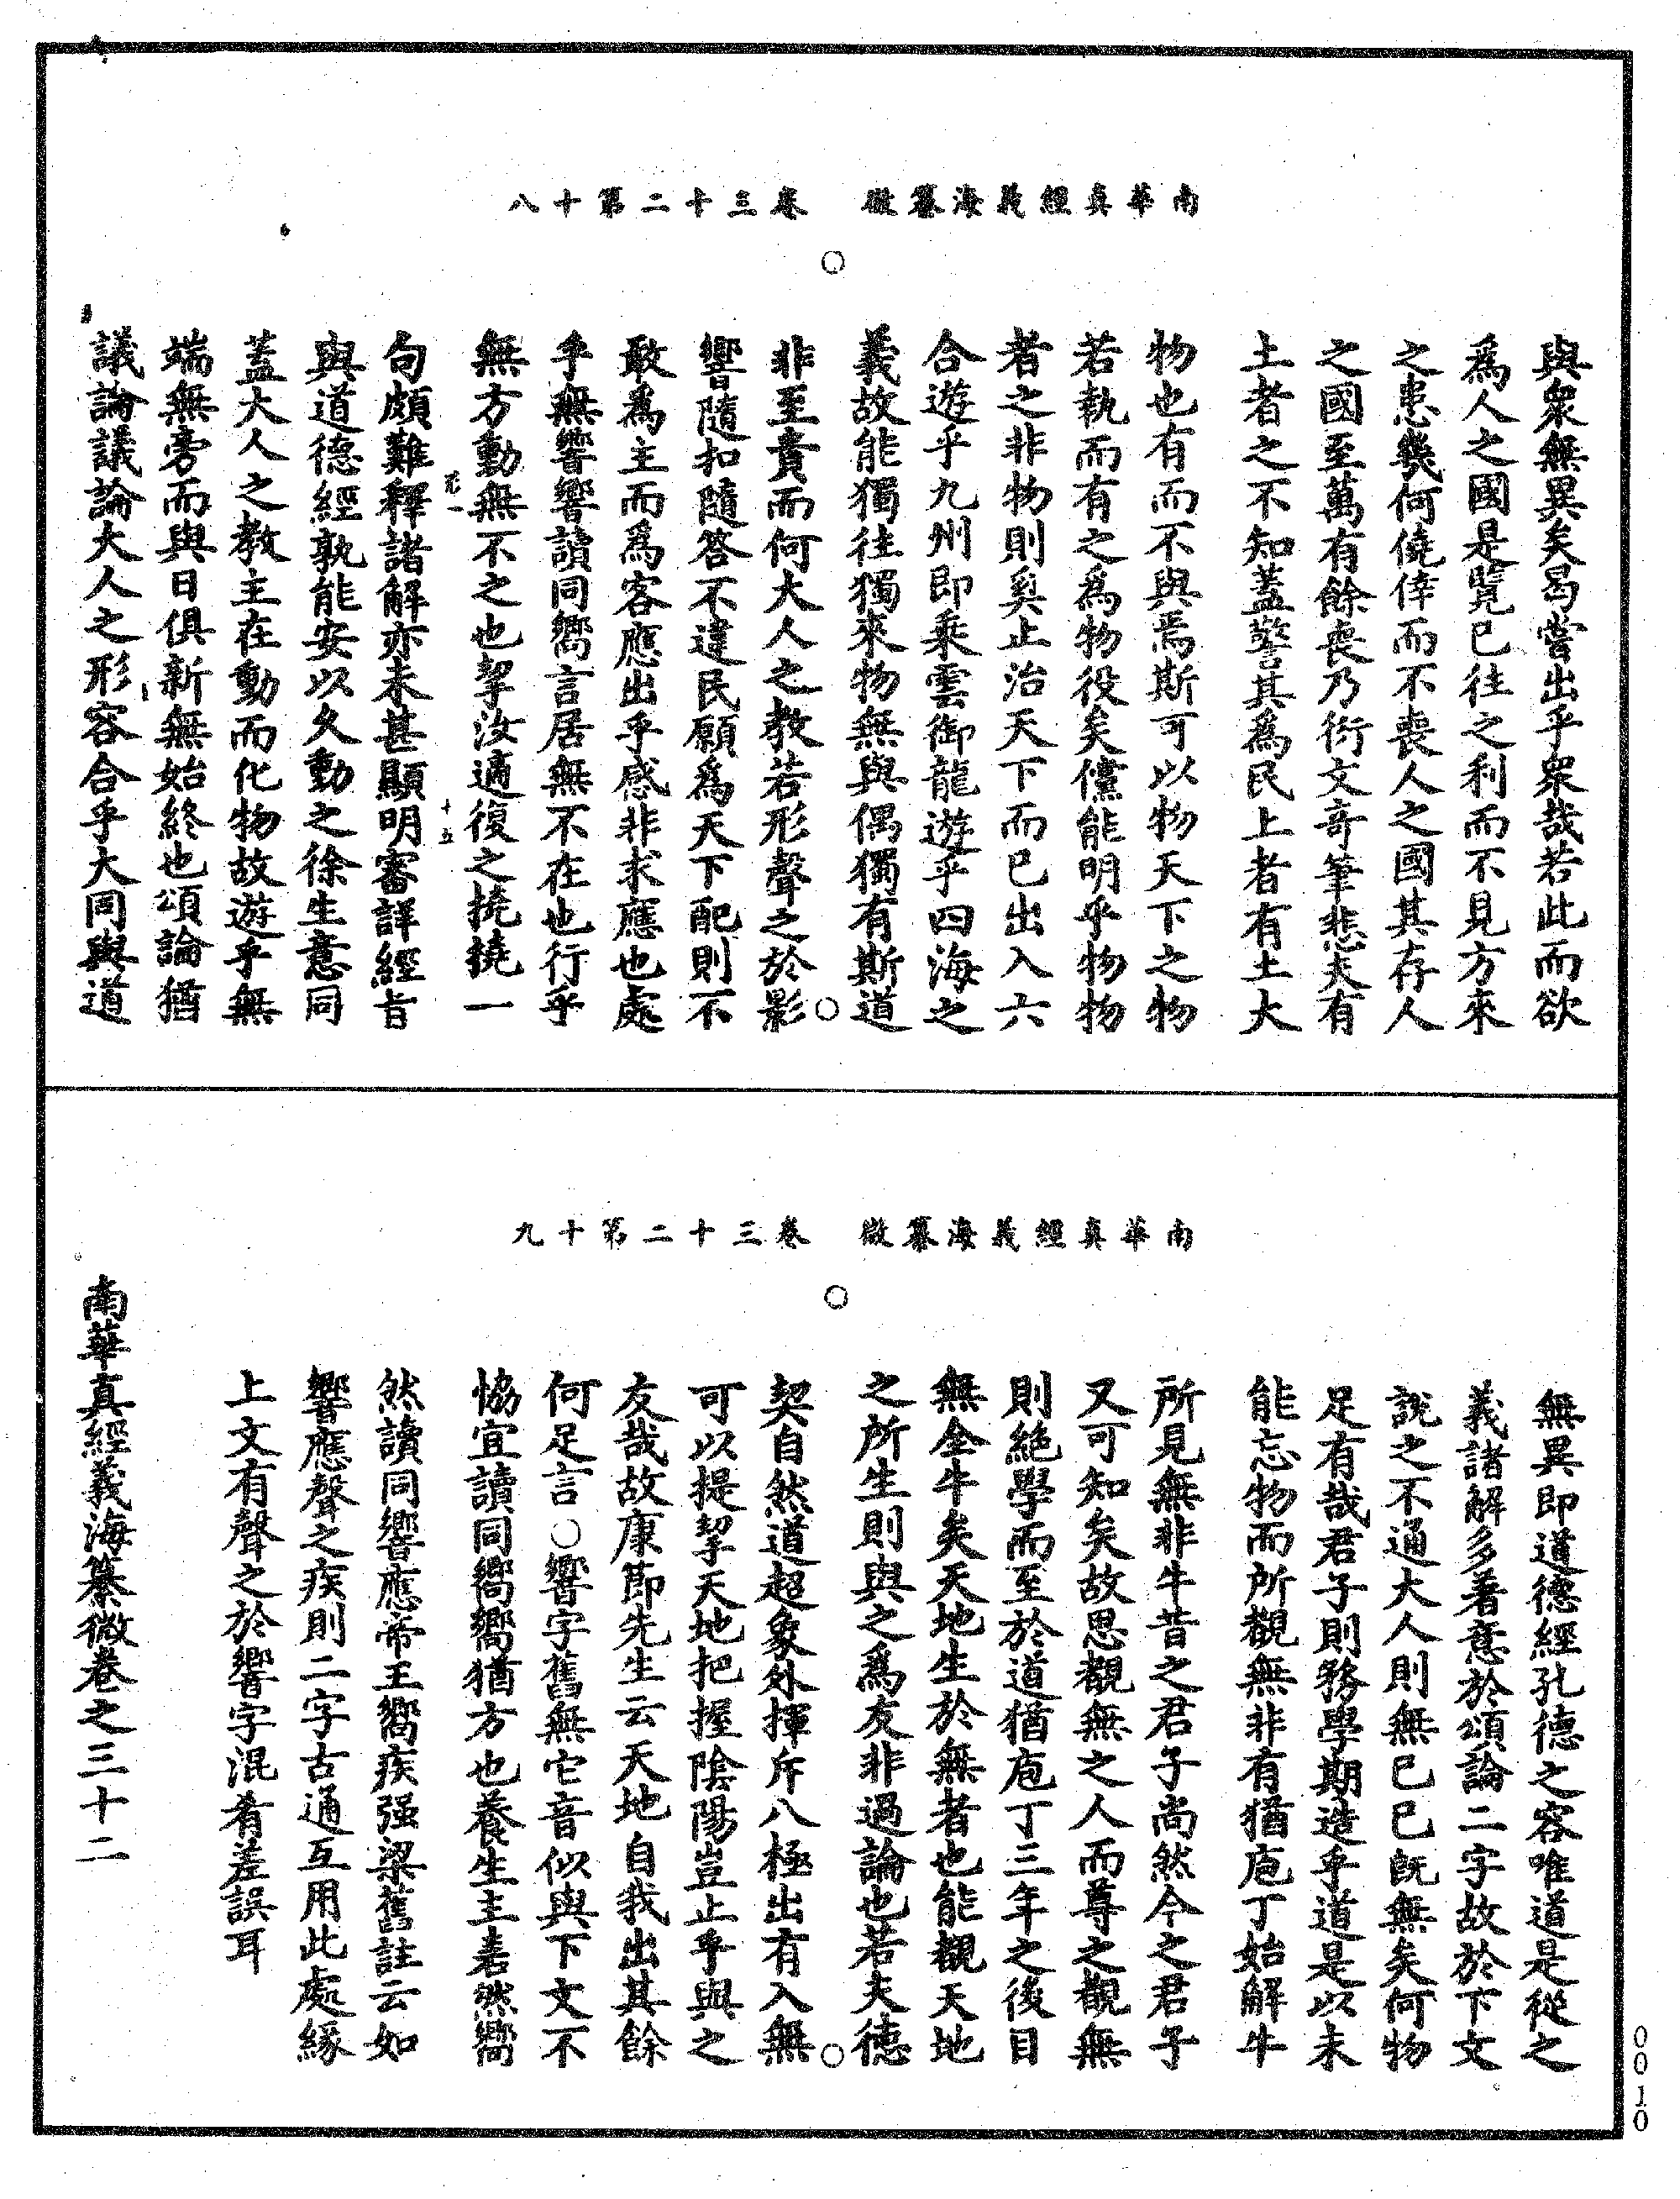 南華真經義海纂微　卷三十二第十八
與眾無異矣曷嘗出乎眾哉若此而欲
為人之國是覽已往之利而不見方來
之患幾何僥倖而不喪人之國其存人
之國至萬有餘喪乃衍文奇筆悲夫有
土者之不知蓋警其為民上者有土大
物也有而不與焉斯可以物天下之物
若執而有之為物役矣儻能明乎物物
者之非物則奚止治天下而已出入六
合遊乎九州即乘雲御龍遊乎四海之
義故能獨往獨來物無與偶獨有斯道
非至貴而何大人之教若形聲之於影
響隨扣隨答不違民願為天下配則不
敢為主而為客應出乎感非求應也處
乎無響響讀同嚮言居無不在也行乎
無方動無不之也挈汝適復之撓撓一
句頗難釋諸解亦未甚顯明審詳經旨
與道德經孰能安以久動之徐生意同
蓋大人之教主在動而化物故遊乎無
端無旁而與日俱新無始終也頌論猶
議論議論大人之形容合乎大同與道
南華真經義海纂微　卷三十二第十九
無異即道德經孔德之容唯道是從之
義諸解多著意於頌論二字故於下文
說之不通大人則無已已既無矣何物
足有哉君子則務學期造乎道是以未
能忘物而所觀無非有猶庖丁始解牛
所見無非牛昔之君子尚然今之君子
又可知矣故思觀無之人而尊之觀無
則絕學而至於道猶庖丁三年之後目
無全牛矣天地生於無者也能觀天地
之所生則與之為友非過論也若夫德
契自然道超象外揮斥八極出有入無
可以提挈天地把握陰陽豈止乎與之
友哉故康節先生云天地自我出其餘
何足言○響字舊無它音似與下文不
恊宜讀同嚮嚮猶方也養生主砉然嚮
然讀同響應帝王嚮疾强梁舊註云如
響應聲之疾則二字古通互用此處緣
上文有聲之於響字混肴差誤耳
南華真經義海纂微卷之三十二
0010